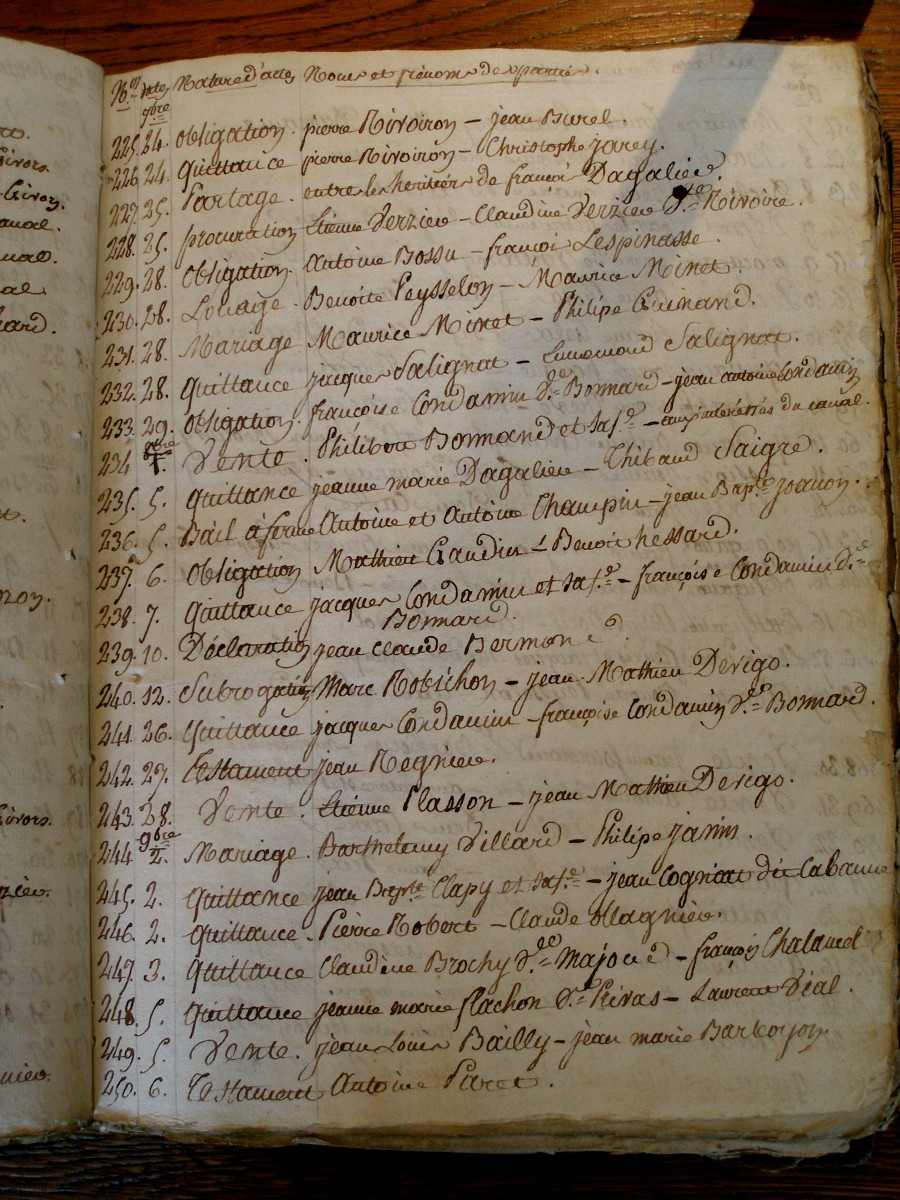 rt.
Givors.
Givors.
canal.
canal.
al
hard.
nzon.
Givors.
rzieu.
nieu.
N.os Dates Nature d'actes Noms et prénoms des parties.
7bre
225. 24. Obligation. pierre Rivoiron – jean Burel.
226. 24. Quittance pierre Rivoiron – Christophe jarey.
227. 25. Partage. entre les heritiers de françoi Dagalieu.
228. 25. procuration Etienne Verzieu – Claudine Verzieu Rivoire.
229. 28. Obligation. Antoine Bossu – françoi Lespinasse.
230. 28. Louage. Benoite Peysselon – Maurice Minet.
231. 28. Mariage Maurice Minet – Philipe Guinand.
232. 28. Quittance jacques Salignat – Salignat.
233. 29. Obligation. françoise Condamin d.e Bonnard – jean antoine Condamin
8bre
234 1. Vente. Philibert Bonnand et sa f.e – aux interessés du canal.
235. 5. Quittance jeanne marie Dagalieu – Thibaud Saigre.
236. 5. Bail à ferme Antoine et Antoine Champin – jean Bapt.e joanon.
237. 6. Obligation Mathieu Gaudin – Benoit hessard.
238. 7. Quittance jacques Condamin et sa f.e – françoise Condamin d.e
Bonnard.
239. 10. Déclaration jean Claude Bermond.
240. 12. Subrogation Marc Robichon – jean Mathieu Derigo.
241. 26. Quittance jacques Condamin – françoise Condamin d.e Bonnard.
242. 27. Testament jean Regnieu.
243. 28. Vente. Etienne Plasson – jean Mathieu Derigo.
9bre
244 2. Mariage. Barthelemy Villard – Philipe janin.
245. 2. Quittance jean Bapt.e Clapy et sa f.e – jean Cognat dit Cabanne
246. 2. Quittance. Pierre Robert – Claude ollagnieu.
247. 3. Quittance Claudine Brochy d.e Majoud – françoi Chalaud
248. 5. Quittance jeanne marie flachon d.e Rivas – Laurent Vial.
249. 5. Vente. jean Louis Bailly – jean marie Barboyon.
250. 6. Testament Antoine Paret.